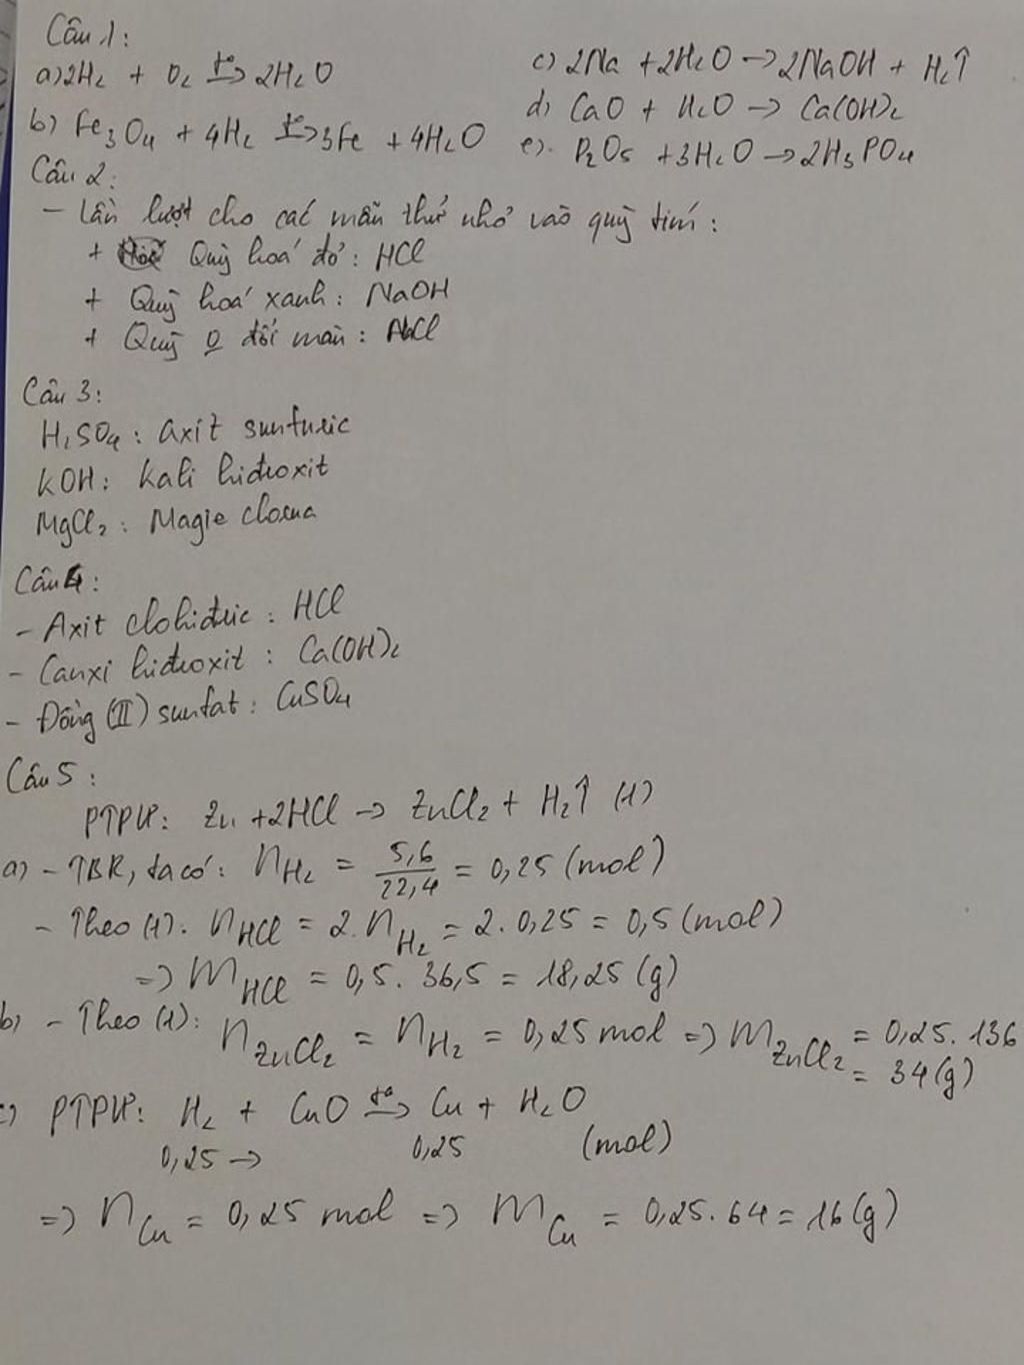 Câu 1:
a) 2H₂ + O₂ →(t°) 2H₂O
b) Fe₃O₄ + 4H₂ →(t°) 3Fe + 4H₂O
c) 2Na + 2H₂O → 2NaOH + H₂↑
d) CaO + H₂O → Ca(OH)₂
e) P₂O₅ + 3H₂O → 2H₃PO₄
Câu 2:
- Lần lượt cho các mẫu thử nhỏ vào quỳ tím:
+ Quỳ hoá đỏ: HCl
+ Quỳ hoá xanh: NaOH
+ Quỳ o đổi màu: NaCl
Câu 3:
H₂SO₄: axit sunfuric
KOH: kali hiđroxit
MgCl₂: Magie clorua
Câu 4:
- Axit clohiđric: HCl
- Canxi hiđroxit: Ca(OH)₂
- Đồng (II) sunfat: CuSO₄
Câu 5:
PTPƯ: Zn + 2HCl → ZnCl₂ + H₂↑ (1)
a) - TBR, ta có: nH₂ = 5,6/22,4 = 0,25 (mol)
- Theo (1): nHCl = 2.nH₂ = 2.0,25 = 0,5 (mol)
=> mHCl = 0,5.36,5 = 18,25 (g)
b) - Theo (1): nZnCl₂ = nH₂ = 0,25 mol => mZnCl₂ = 0,25.136
= 34 (g)
c) PTPƯ: H₂ + CuO →(t°) Cu + H₂O
0,25 → 0,25 (mol)
=> nCu = 0,25 mol => mCu = 0,25.64 = 16 (g)